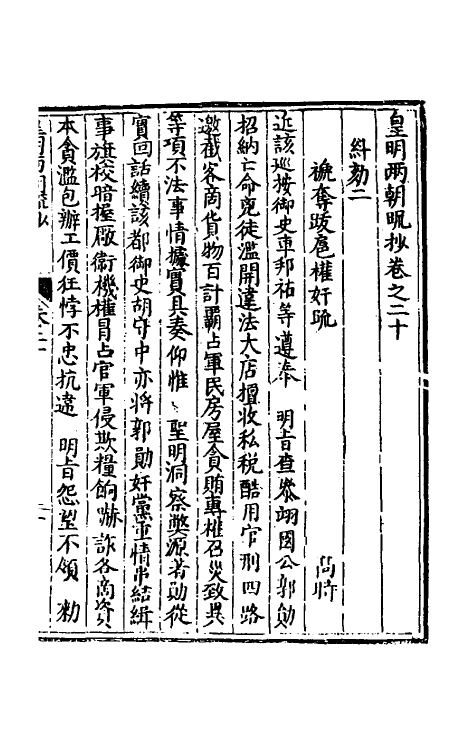 皇明兩朝䟽抄卷之二十
糾劾二
褫奪跋扈權奸疏 高時
近該廵按御史重邦祐等遵奉 明旨查叅翊國公郭勛
招納亡命兇徒濫開違法大店擅收私税酷用官刑四路
邀截客商貨物百計霸占軍民房屋貪賄專權召災致異
等項不法事情據實具奏仰惟 聖明洞察獘源着勛從
實回話續該都御史胡守中亦將郭勛奸黨重情串結緝
事旗校暗握厰衛機權冐占官軍侵欺糧餉嚇詐各商資
本貪濫包辦工價狂悖不忠抗違 明旨怨望不領 勑